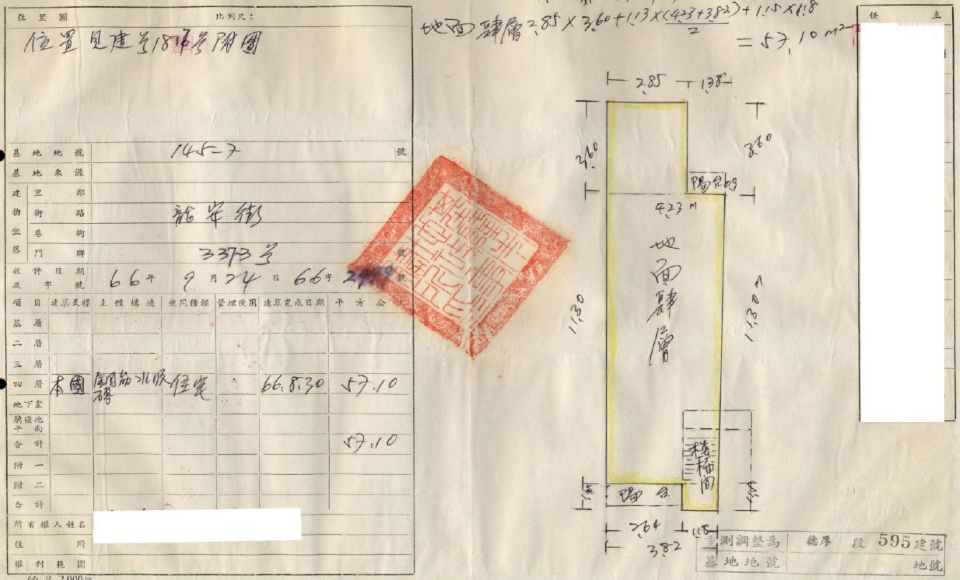 位置圖 比例尺：
位置見建号1816号附圖
基地地號 145-7 號
基地來源
建 里鄰
物 街路 龍安街
坐 巷衖
落 門牌 號
收件日期及字號 66年9月24日66字 號
項目 建築式樣 主體構造 使用種類 管理使用 建築完成日期 平方公尺
基層
二層
三層
四層 本國 鋼筋水泥磚 住宅 66.8.30 57.10
地下室
騎樓地平面
合計 57.10
附一
附二
合計
所有權人姓名
住所
權利範圍
地面肆層 2.85×3.60+1.13×(423+382)/2+1.15×1.18
=57.10m²
2.85 1.38
3.60 3.60
陽台
4.23M
地面肆層
11.30 11.30M
樓梯間
陽台
2.64 1.18
3.82
重測調整為 德厚段 595建號
基地地號 地號
主任